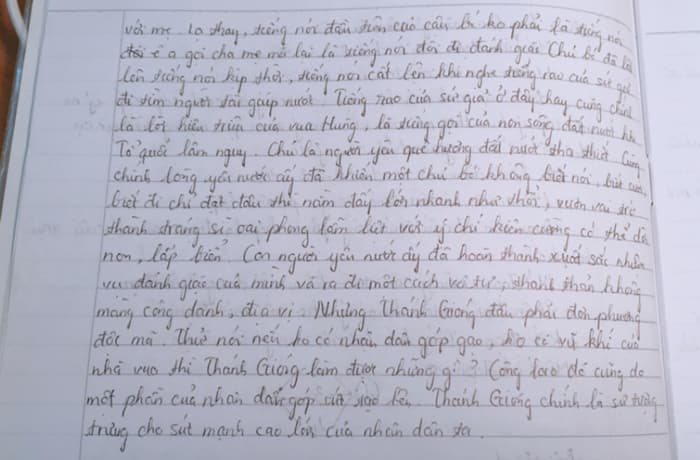 với mẹ. Lạ thay, tiếng nói đầu tiên của cậu bé ko phải là tiếng nói
ê a gọi cha mẹ mà lại là tiếng nói đòi đi đánh giặc. Chú bé đã
lên tiếng nói kịp thời, tiếng nói cất lên khi nghe tiếng rao của sứ giả
đi tìm người tài giúp nước. Tiếng rao của sứ giả ở đây hay cũng chính
là lời hiệu triệu của vua Hùng, là tiếng gọi của non sông đất nước khi
Tổ quốc lâm nguy. Chú là người yêu quê hương đất nước tha thiết. Cũng
chính lòng yêu nước ấy đã khiến một chú bé không biết nói, biết cười,
biết đi chỉ đặt đâu thì nằm đấy lớn nhanh như thổi, vươn vai trở
thành tráng sĩ oai phong lẫm liệt với ý chí kiên cường có thể dời
non, lấp biển. Con người yêu nước ấy đã hoàn thành xuất sắc nhiệm
vụ đánh giặc của mình và ra đi một cách vô tư, thanh thản không
màng công danh, địa vị. Nhưng Thánh Gióng đâu phải đơn phương
độc mã. Thử nói nếu ko có nhân dân góp gạo, ko có vũ khí của
nhà vua thì Thánh Gióng làm được những gì? Công lao đó cũng do
một phần của nhân dân góp sức tạo lên. Thánh Gióng chính là sự tượng
trưng cho sức mạnh cao lớn của nhân dân ta.